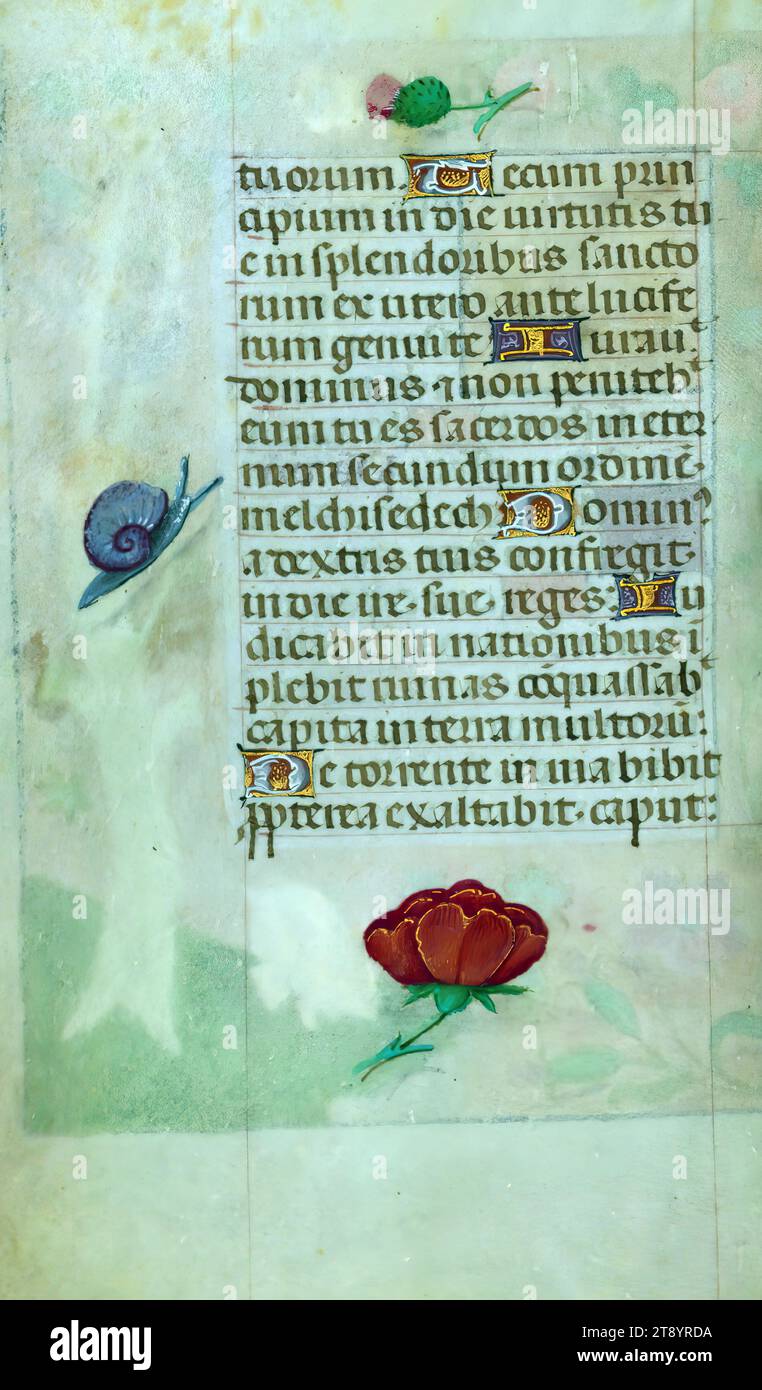 tuorum. Tecum prin
cipium in die uirtutis tu
e in splendoribus sancto
rum ex utero ante lucife
rum genui te Iurau͛
dominus ⁊ non peniteb͛
eum tu es sacerdos in eter
num secundum ordinē
melchisedech Domin⁹
a dextris tuis confregit
in die ire sue reges: Iu
dicabit in nationibus ī
plebit ruinas cōquassab͛
capita in terra multorū:
De torrente in uia bibit
ꝓpterea exaltabit caput:
alamy
alamy
alamy
alamy
Image ID: 2T8YRDA
www.alamy.com